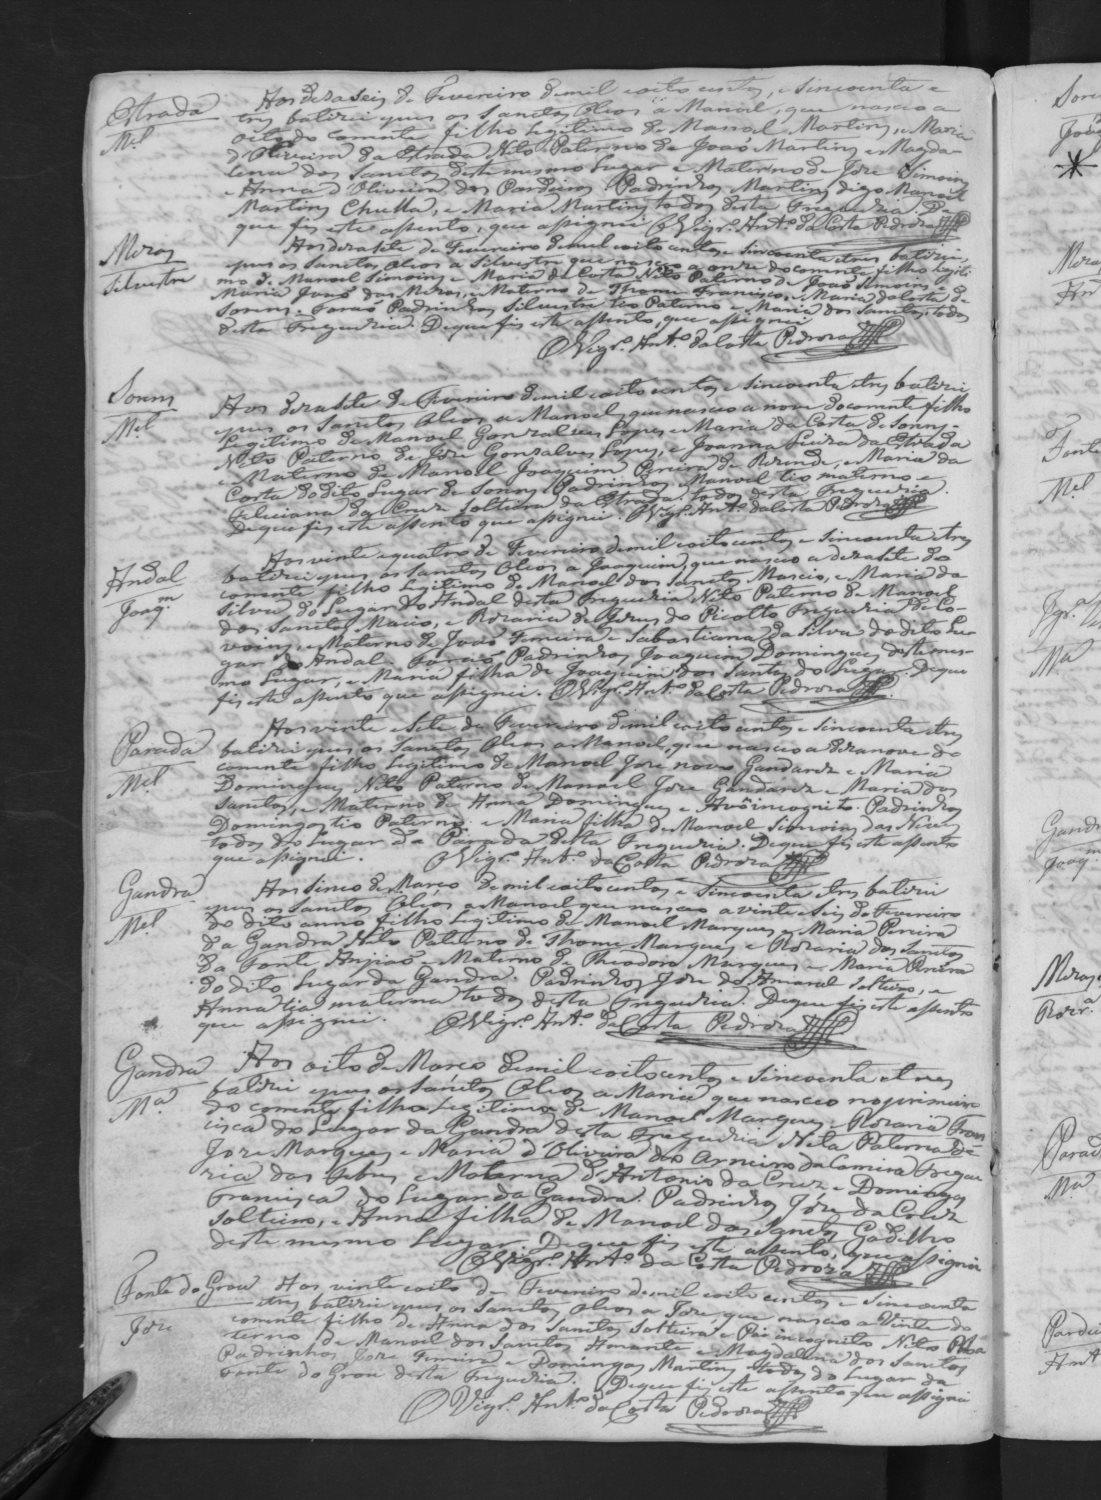 Estrada
M.el
Aos deraseis de Fevereiro de mil oito centos, e sincoenta e
tres batizei e pus os Sanctos Oleos a Manoel, que nasceo a
oito do corrente filho Legitimo de Manoel Martins, e Maria
d'Oliveira da Estrada Neto Paterno de João Martins e Magda-
lena dos Sanctos deste mesmo Lugar e Materno de Jose Simoins
e Anna d'Oliveira dos Pardieiros Padrinhos Martins digo Manoel
Martins Chulla, e Maria Martins todos desta Freguezia De
que fis este assento, que assignei O Vigr.º Ant.º da Costa Pedroza
Meroz
Silvestre
Aos derasete de Fevereiro de mil oito centos e sincoenta e tres batizei,
e pus os Sanctos Oleos a Silvestre que nasceo a onze do corrente, filho Legiti-
mo de Manoel Simoins e Maria da Costa Neto Paterno de João Simoins e
Maria dos Meroz, e Materno de Thome Francisco, e Maria da Costa de
Sorens. Forão Padrinhos Silvestre tio Paterno e Maria dos Sanctos todos
desta Freguezia. De que fis este assento, que assignei
O Vigr.º Ant.º da Costa Pedroza
Sorens
M.el
Aos derasete de Fevereiro de mil oito centos e sincoenta e tres batizei
e pus os Sanctos Oleos a Manoel, que nasceo a nove do corrente filho
Legitimo de Manoel Gonsalves Lopes, e Maria da Costa de Sorens-
Neto Paterno de Jose Gonsalves Lopes, e Joanna Vieira da Estrada
e Materno de Manoel Joaquim Pereira de Rezende, e Maria da
Costa do dito Lugar de Sorens Padrinhos Manoel tio materno e
Feliciana da Cruz Solteira da Estrada todos desta Freguezia.
De que fis este assento que assignei. O Vigr.º Ant.º da Costa Pedroza
Andal
Joaq.m
Aos vinte e quatro de Fevereiro de mil oito centos e sincoenta e tres
batizei e pus os Sanctos Oleos a Joaquim, que nasceo a derasete do
corrente filho Legitimo de Manoel dos Sanctos Marcio, e Maria da
Silva do Lugar do Andal desta Freguezia Neto Paterno de Manoel
dos Sanctos Marcio, e Rozaria de Jezus do Picoto Freguezia de Co-
voens, e Materno de João Ferreira e Sabastiana da Silva do dito Lu-
gar do Andal. Forão Padrinhos Joaquim Domingues deste mes-
mo Lugar, e Maria filha de Joaquim dos Santos do Lugar. De que
fis este assento que assignei. O Vigr.º Ant.º da Costa Pedroza
Parada
M.el
Aos vinte e sete de Fevereiro de mil oito centos e sincoenta e tres
batizei e pus os Sanctos Oleos a Manoel, que nasceo a deranove do
corrente filho Legitimo de Manoel Jose novo Gandarez e Maria
Domingues Neto Paterno de Manoel Jose Gandarez e Maria dos
Sanctos, e Materno de Anna Domingues e Avô incognito. Padrinhos
Domingos tio Paterno. e Maria filha de Manoel Simoins das Neves
todos do Lugar da Parada desta Freguezia. De que fis este assento
que assignei. O Vigr.º Ant.º da Costa Pedroza
Gandra
M.el
Aos sinco de Março de mil oito centos e sincoenta e tres batizei
e pus os Sanctos Oleos a Manoel que nasceo a vinte e seis de Fevereiro
do dito anno filho Legitimo de Manoel Marques e Maria Pereira
da Gandra Neto Paterno de Thome Marques e Rozaria dos Santos
da Fonte Anjiaõ e Materno de Theodoro Marques e Maria Pereira
do dito Lugar da Gandra. Padrinhos Jose do Amaral solteiro, e
Anna tia materna todos desta Freguezia. De que fis este assento
que assignei. O Vigr.º Ant.º da Costa Pedroza
Gandra
M.a
Aos oito de Março de mil oito centos e sincoenta e tres
batizei e pus os Sanctos Oleos a Maria que nasceo no primeiro
do corrente filha Legitima de Manoel Marques e Rozaria Fran-
cisca do Lugar da Gandra desta Freguezia Neta Paterna de
Jose Marques e Maria d'Oliveira do Arneiro da Comira Fregue
zia das Febres e Materna d'Antonio da Cruz e Domingas
Francisca do Lugar da Gandra. Padrinhos Jose da Cruz
solteiro, e Anna filha de Manoel dos Sanctos Gadelho
deste mesmo Lugar De que fis este assento, que assignei
O Vigr.º Ant.º da Costa Pedroza
Fonte do Grou
Jose
Aos vinte e oito de Fevereiro de mil oito centos e sincoenta
e tres batizei e pus os Sanctos Oleos a Jose, que nasceo a vinte do
corrente filho de Anna dos Sanctos solteira e Pai incognito Neto
terno de Manoel dos Sanctos Amante e Magdalena dos Sanctos
Padrinhos Jose Ferreira e Domingas Martins todos do Lugar da
Fonte do Grou desta Freguezia. De que fis este assento que assignei
O Vigr.º Ant.º da Costa Pedroza